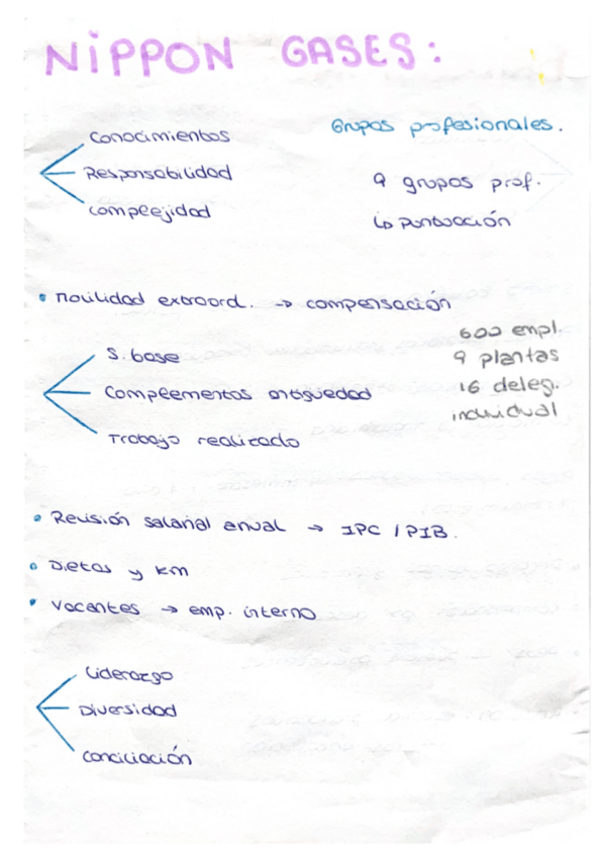 NiPPON GASES:
Grupos profesionales.
Conocimientos
Responsabilidad
Complejidad
9 grupos prof.
↳ Puntuación
• Movilidad extraord. → compensación
600 empl.
9 plantas
16 deleg.
individual
S. base
Complementos antiguedad
Trabajo realizado
• Revisión salarial anual → IPC / PIB.
• Dietas y km
• Vacantes → emp. interno
Liderazgo
Diversidad
Conciliación